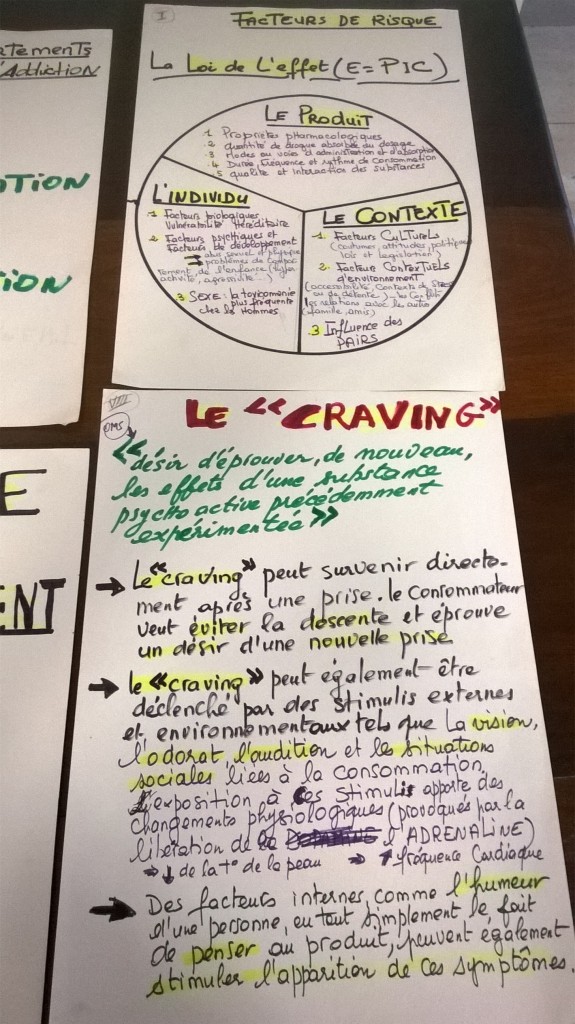 atements
d'Addiction
OTION
ION
E
ENT
I
FACTEURS DE RISQUE
La Loi de L'effet (E = PIC)
LE PRODUIT
.1 Propriétés pharmacologiques
.2 quantité de drogue absorbée ou dosage
.3 Modes ou voies d'administration et d'absorption
.4 Durée, fréquence et rythme de consommation
.5 qualité et interaction des substances
L'INDIVIDU
.1 Facteurs biologiques
Vulnérabilité Héréditaire
2 Facteurs psychiques et
Facteurs de développement
→ abus sexuel et physique
→ problèmes de compor
tement de l'enfance (hyper
activité, agressivité...)
.3 SEXE : la toxicomanie
+ plus fréquente
chez les Hommes
LE CONTEXTE
1. Facteurs CULTURELS
(coutumes, attitudes, politiques
lois et législation)
2. Facteur CONTEXTUELS
d'environnement
(accessibilité, Contexte de stress
ou de détente)
les relations avec le autrui
(famille, amis)
.3 Influence des
PAIRS
VIII
LE « CRAVING »
OMS
« désir d'éprouver, de nouveau,
les effets d'une substance
psycho active précédemment
expérimentée »
→ Le « craving » peut survenir directe-
ment après une prise. le consommateur
veut éviter la descente et éprouve
un désir d'une nouvelle prise
→ le « craving » peut également être
déclenché par des stimulis externes
et environnementaux tels que la vision,
l'odorat l'audition et les situations
sociales liées à la consommation
L'exposition à ces stimulis apporte des
changements physiologiques (provoqués par la
libération de l'ADRENALINE)
→ ↓ de la t° de la peau → ↑ fréquence Cardiaque
→ Des facteurs internes, comme l'humeur
d'une personne, ou tout simplement le fait
de penser au produit, peuvent également
stimuler l'apparition de ces symptômes.